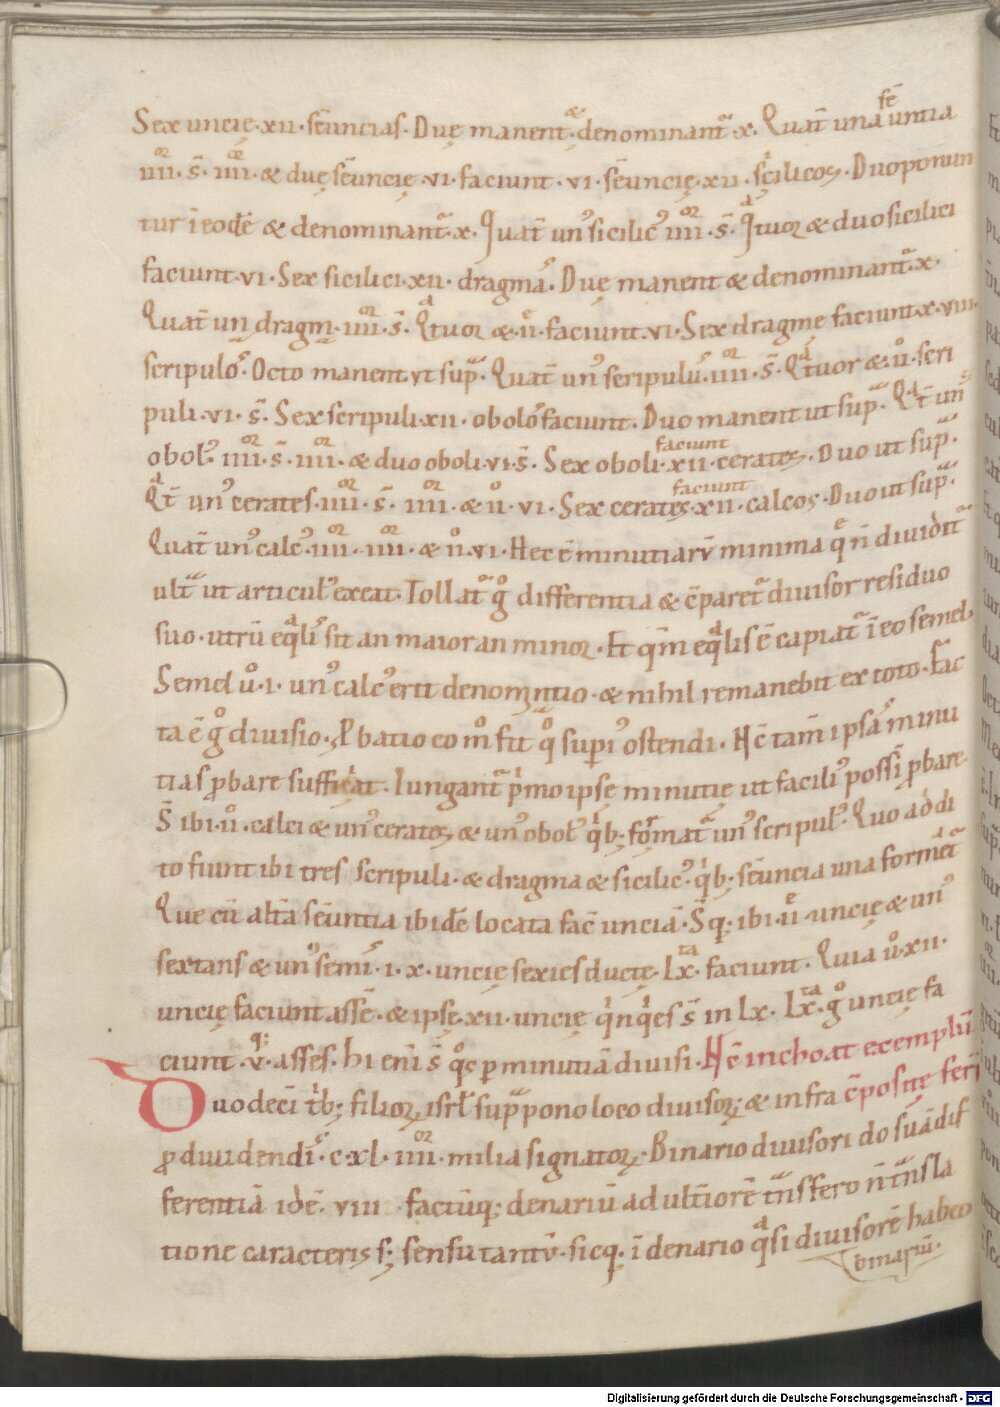 Sex uncię·xii·sēuncias· Duę manent·& denominant̄·x· Quat̄ una sēuntia
iiii·s̄·iiii·& duę sēuncię·vi·faciunt·vi·sēuncię·xii·scilicos· Duo ponun
tur ī eodē & denominant̄·x· Quat̄ un' sicilic' iiii·s̄· Qtuor & duo sicilici
faciunt·vi· Sex sicilici·xii·dragmas· Duę manent & denominant̄·x·
Quat̄ un dragm̄·iiii·s̄· Qtuor &·ii·faciunt·vi· Sex dragmę faciunt·x·viii·
scripulos· Octo manent ut sup· Quat̄ un' scripulus·iiii·s̄· Qtuor &·ii·scri
puli·vi·s̄· Sex scripuli·xii·obolos faciunt· Duo manent ut sup· Qt̄ un'
obol'·iiii·s̄·iiii·& duo oboli·vi·s̄· Sex oboli·faciunt xii·cerates· Duo ut sup·
Qt̄ un' cerates·iiii·s̄·iiii·& ii·vi· Sex cerates·faciunt xii·calcos· Duo ut sup·
Quat̄ un' calc'·iiii·iiii·& ii·vi· Hec ē minutiarū minima q̄ n̄ dividit̄
ult̄ ut articul' exeat· Tollat̄ g° differentia & c̄paret̄ divisor residuo
suo·utrū eqlis sit an maior an minor· Et qm̄ eqlis ē capiat̄ ī eo semel·
Semel ů·i·un' calc' erit denomintio·& nihil remanebit ex toto· Fac
ta ē g° divisio· Pbatio eom° fit q° superi' ostendi· Hc̄ tam̄ ipsas minu
tias pbare sufficiat· Iungant̄ pmo ipsę minutię ut facili' possis pbare·
S̄ ibi·ii·calci & un' cerates & un' obol' qb; format̄ un' scripul'· Quo addi
to fiunt ibi tres scripuli·& dragma & sicilic' qb; sēuncia una formet̄
Que cū alt̄a sēuntia ibidē locata fac̄ unciā· S̄q; ibi·ii·uncię & un'
sextans & un' semis·i·x·uncię sexies ductę·lx·ta faciunt· Quia ů·xii·
uncię faciunt assē·& ipsę·xii·uncię qnqes s̄ in lx· Lx·ta g° uncię fa
ciunt·v·asses· hi enī s̄ qos p minutiā divisi· Hc̄ inchoat exemplū
Duodecī tb; filiorꝝ isrl̄ suppono loco divisorꝝ; & infra c̄positę feri
p dividendis·c·xl·iiii·milia signatorꝝ· Binario divisori do suā dif
ferentiā idē·viii factūq; denariū ad ultiorē tn̄sfero n̄ tn̄sla
tione caracteris s; sensu tantū·sicq; ī denario qsi divisorē habeo
binariū·